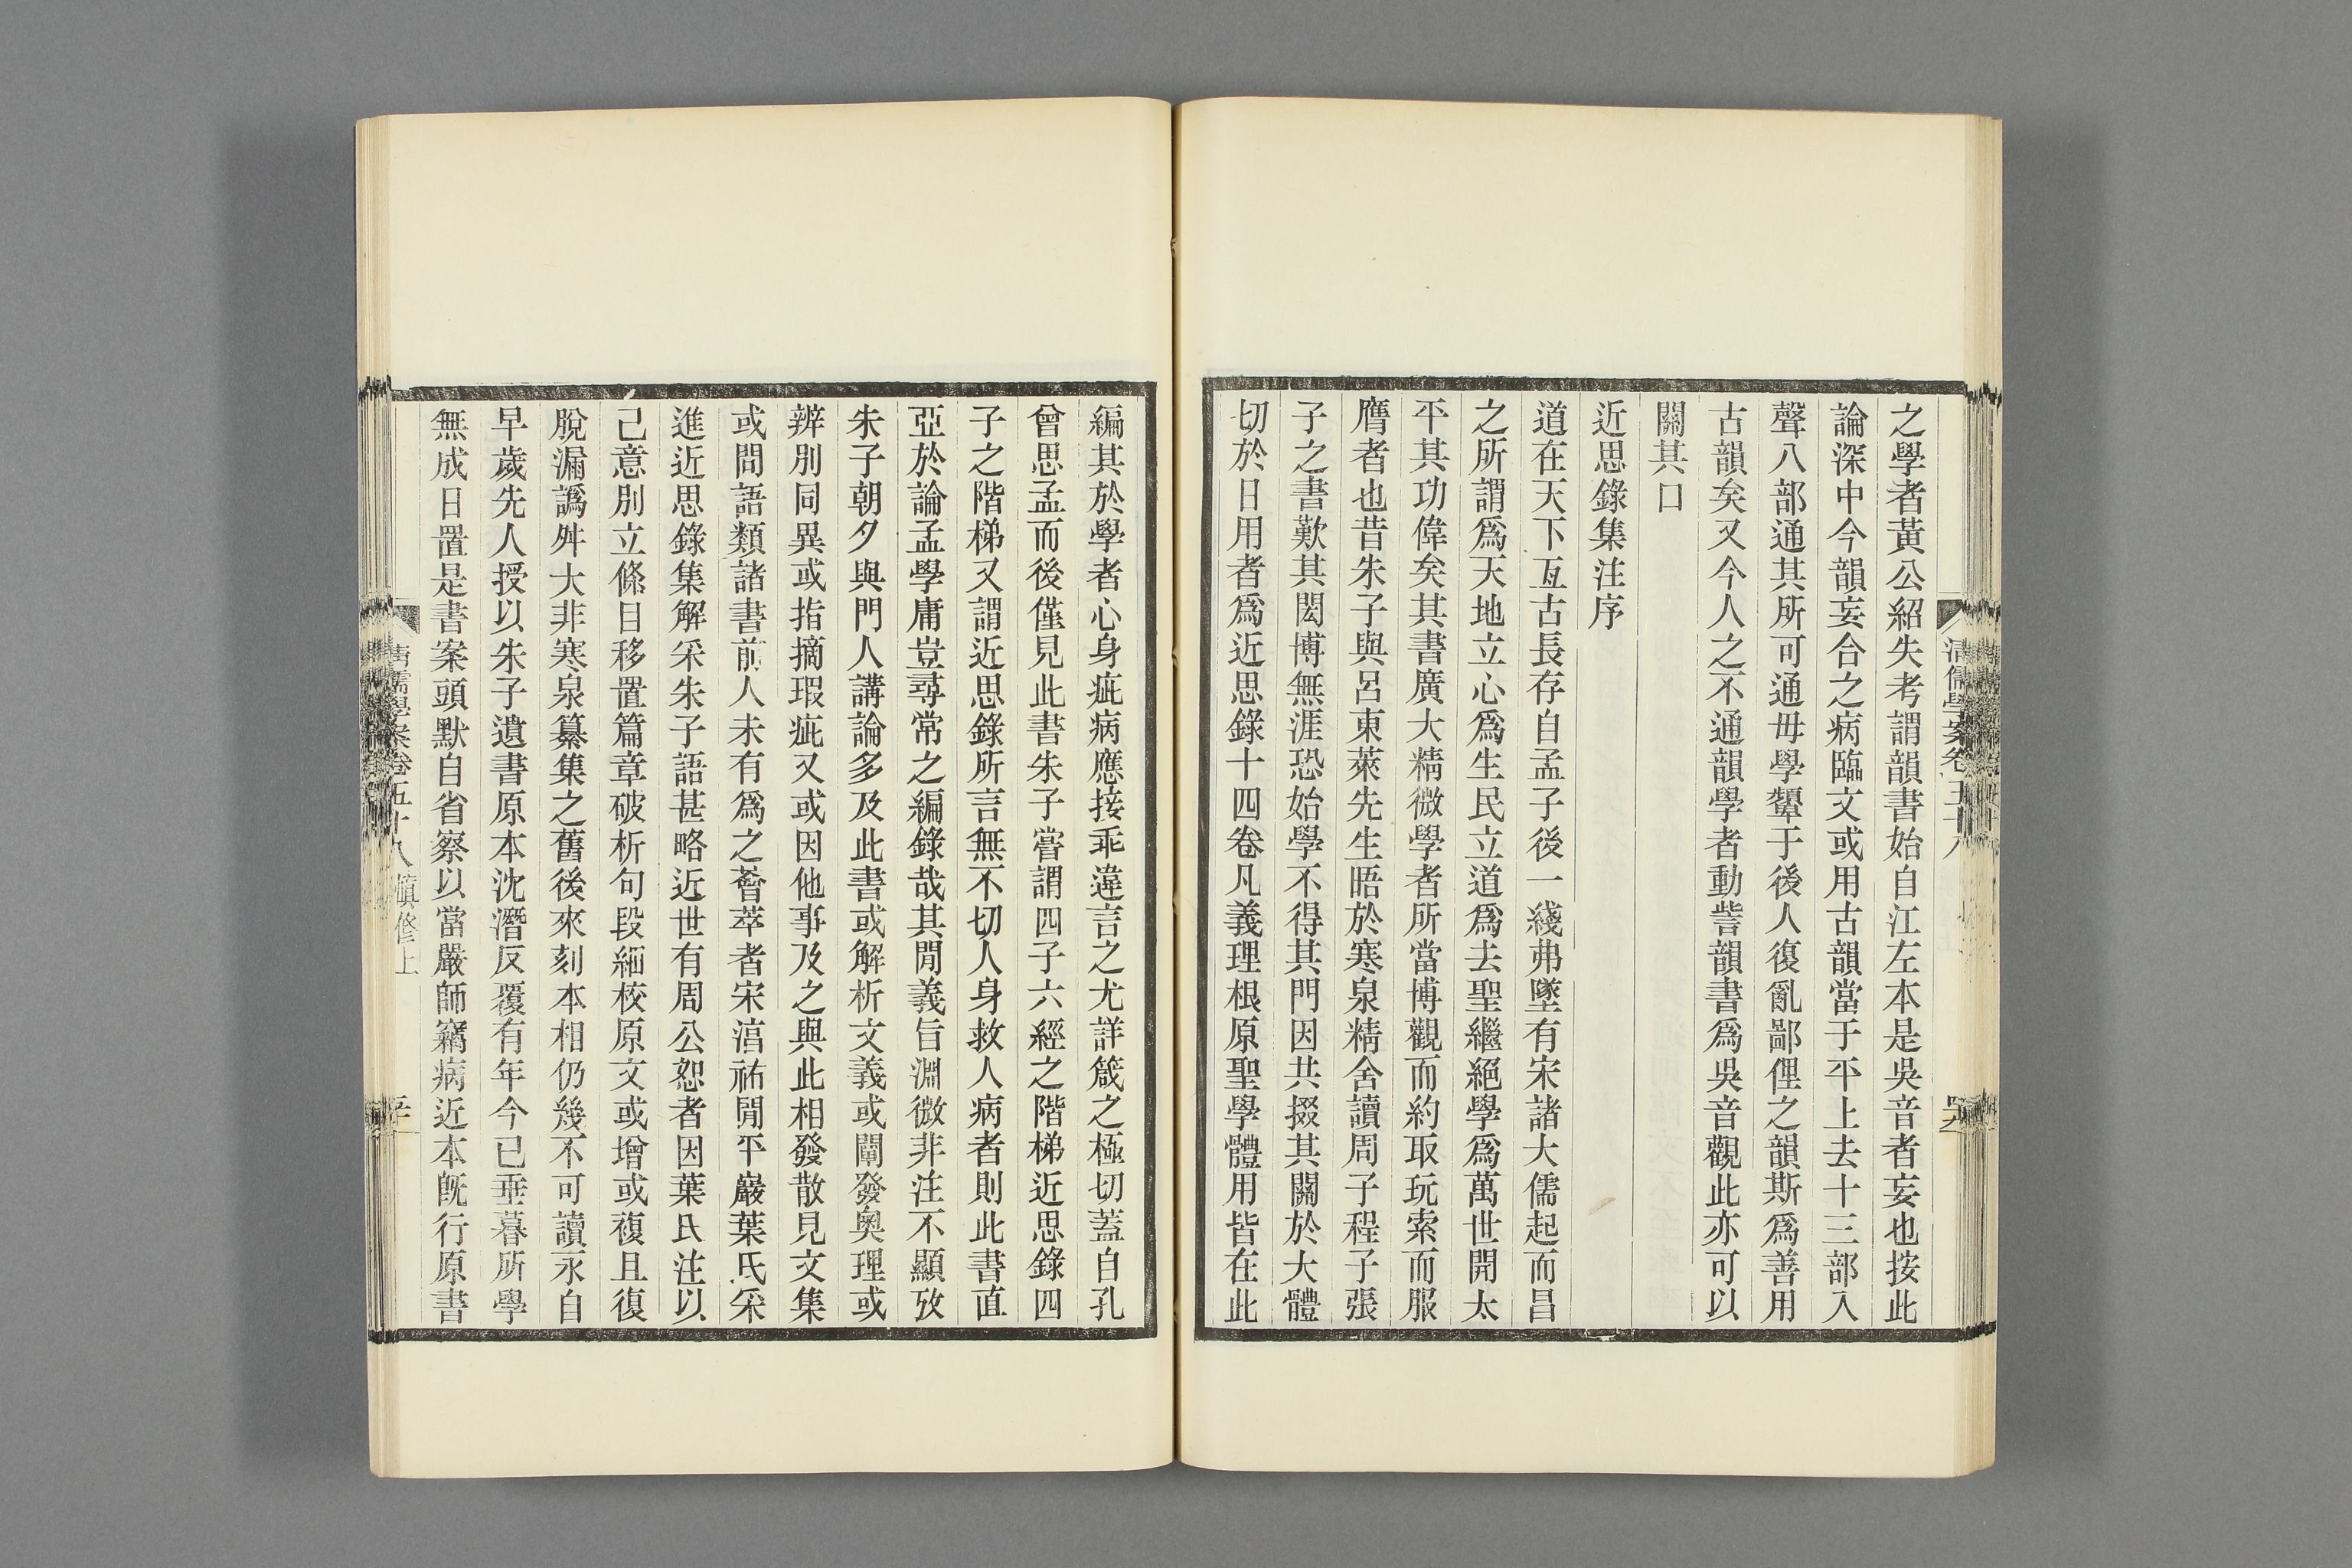 之學者黃公紹失考謂韻書始自江左本是吳音者妄也按此
論深中今韻妄合之病臨文或用古韻當于平上去十三部入
聲八部通其所可通毋學顰于後人復亂鄙俚之韻斯爲善用
古韻矣又今人之不通韻學者動訾韻書爲吳音觀此亦可以
關其口
近思錄集注序
道在天下亙古長存自孟子後一綫弗墜有宋諸大儒起而昌
之所謂爲天地立心爲生民立道爲去聖繼絕學爲萬世開太
平其功偉矣其書廣大精微學者所當博觀而約取玩索而服
膺者也昔朱子與呂東萊先生晤於寒泉精舍讀周子程子張
子之書歎其閎博無涯恐始學不得其門因共掇其關於大體
切於日用者爲近思錄十四卷凡義理根原聖學體用皆在此
編其於學者心身疵病應接乖違言之尤詳箴之極切蓋自孔
曾思孟而後僅見此書朱子嘗謂四子六經之階梯近思錄四
子之階梯又謂近思錄所言無不切人身救人病者則此書直
亞於論孟學庸豈尋常之編錄哉其閒義旨淵微非注不顯攷
朱子朝夕與門人講論多及此書或解析文義或闡發奧理或
辨別同異或指摘瑕疵又或因他事及之與此相發散見文集
或問語類諸書前人未有爲之薈萃者宋淳祐閒平巖葉氏采
進近思錄集解采朱子語甚略近世有周公恕者因葉氏注以
己意別立條目移置篇章破析句段細校原文或增或複且復
脫漏譌舛大非寒泉纂集之舊後來刻本相仍幾不可讀永自
早歲先人授以朱子遺書原本沈潛反覆有年今已垂暮所學
無成日置是書案頭默自省察以當嚴師竊病近本旣行原書
清儒學案卷五十八 慎修上